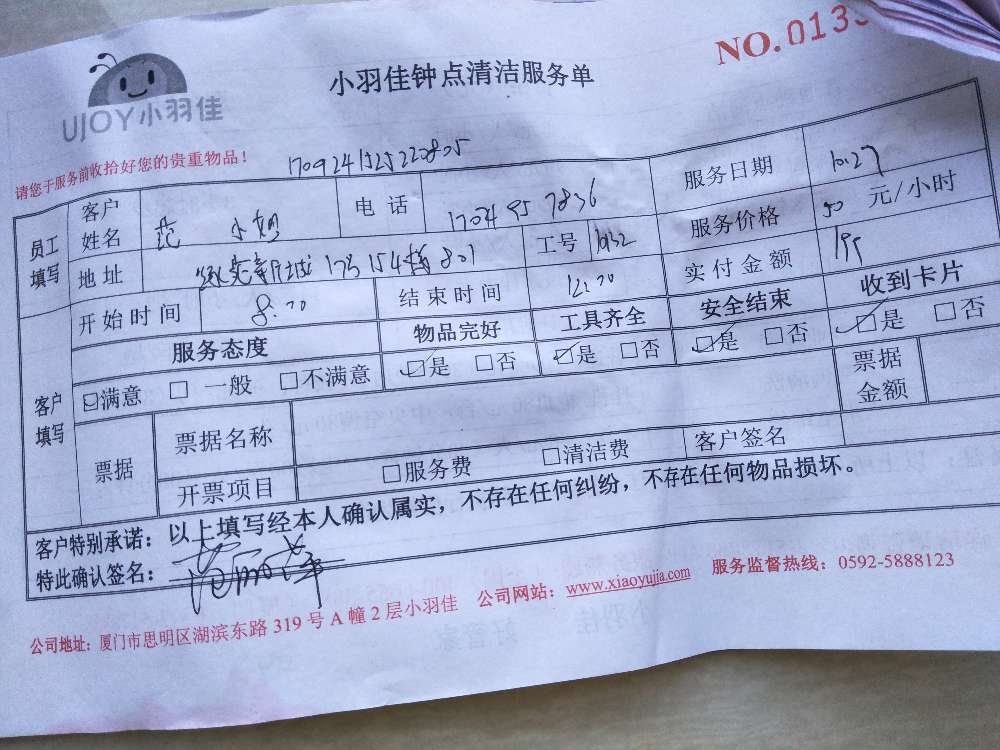 UJOY小羽佳
小羽佳钟点清洁服务单
NO.013
请您于服务前收拾好您的贵重物品！
员工填写
客户姓名 范 小姐 电话 服务日期 10.27
地址 801 工号 服务价格 50 元/小时
开始时间 8.00 结束时间 12.00 实付金额 195
客户填写
服务态度 物品完好 工具齐全 安全结束 收到卡片
☑满意 □一般 □不满意 ☑是 □否 ☑是 □否 ☑是 □否 ☑是 □否
票据 票据名称 票据金额
开票项目 □服务费 □清洁费 客户签名
客户特别承诺：以上填写经本人确认属实，不存在任何纠纷，不存在任何物品损坏。
特此确认签名：
公司地址：厦门市思明区湖滨东路 319 号 A 幢 2 层小羽佳 公司网站：www.xiaoyujia.com 服务监督热线：0592-5888123